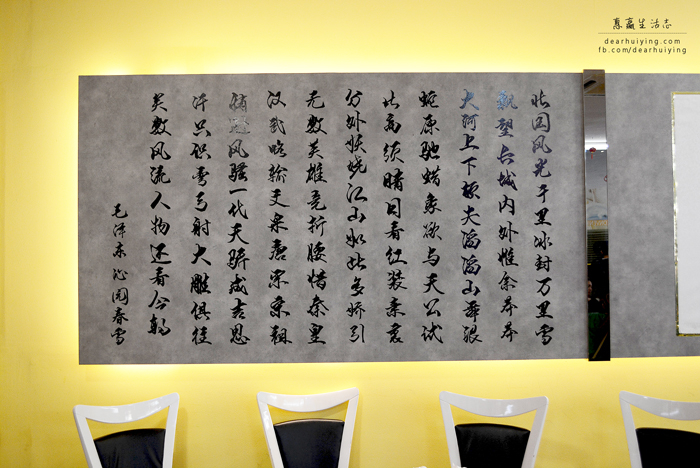 惠赢生活志
dearhuiying.com
fb.com/dearhuiying
北国风光千里冰封万里雪
飘望长城内外惟余莽莽
大河上下顿失滔滔山舞银
蛇原驰蜡象欲与天公试
比高须晴日看红装素裹
分外妖娆江山如此多娇引
无数英雄竞折腰惜秦皇
汉武略输文采唐宗宋祖
稍逊风骚一代天骄成吉思
汗只识弯弓射大雕俱往
矣数风流人物还看今朝
毛泽东沁园春雪